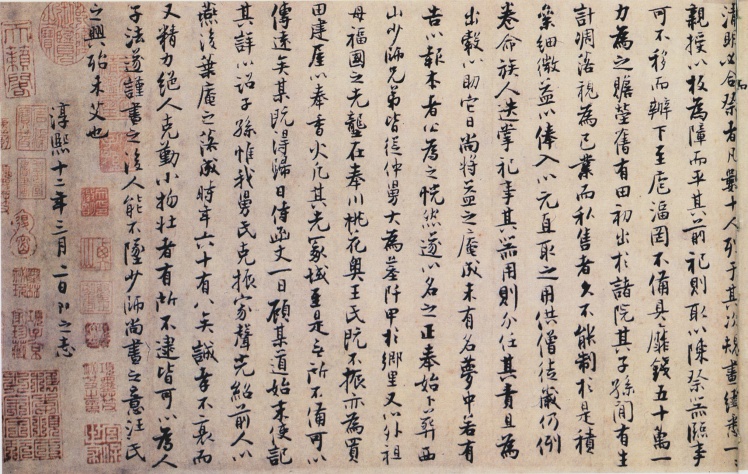 清明必合祭者凡數十人列于其次規畫纖悉一一
親授以板為障而平其前祀則取以陳祭器臨事
可不移而辦下至庖湢罔不備具靡錢五十萬一
力為之贍塋舊有田初出於諸院其子孫間有生
計凋落視為己業而私售者久不能制於是積
絫細微益以俸入以元直取之用供僧徒歲仍例
卷命族人迭掌祀事其器用則分任其責且為
出穀以助它日尚將益之庵成未有名夢中若有
告以報本者公為之恍然遂以名之正奉始卜葬西
山少師兄弟皆從仲舅大為墓阡甲於鄉里又以外祖
母福國之先壟在奉川桃花奧王氏既不振亦為買
田建屋以奉香火凡其先冢域至是無所不備可以
傳遠矣某既得歸日侍函丈一日顧某道始末使記
其詳以詔子孫惟我舅氏克振家聲光紹前人以
燕後葉庵之落成時年六十有八矣誠孝不衰而
又精力絕人克勤小物壯者有所不逮皆可以為人
子法遂謹書之後人能不墜少師尚書之意汪氏
之興殆未艾也
淳熙十二年三月一日